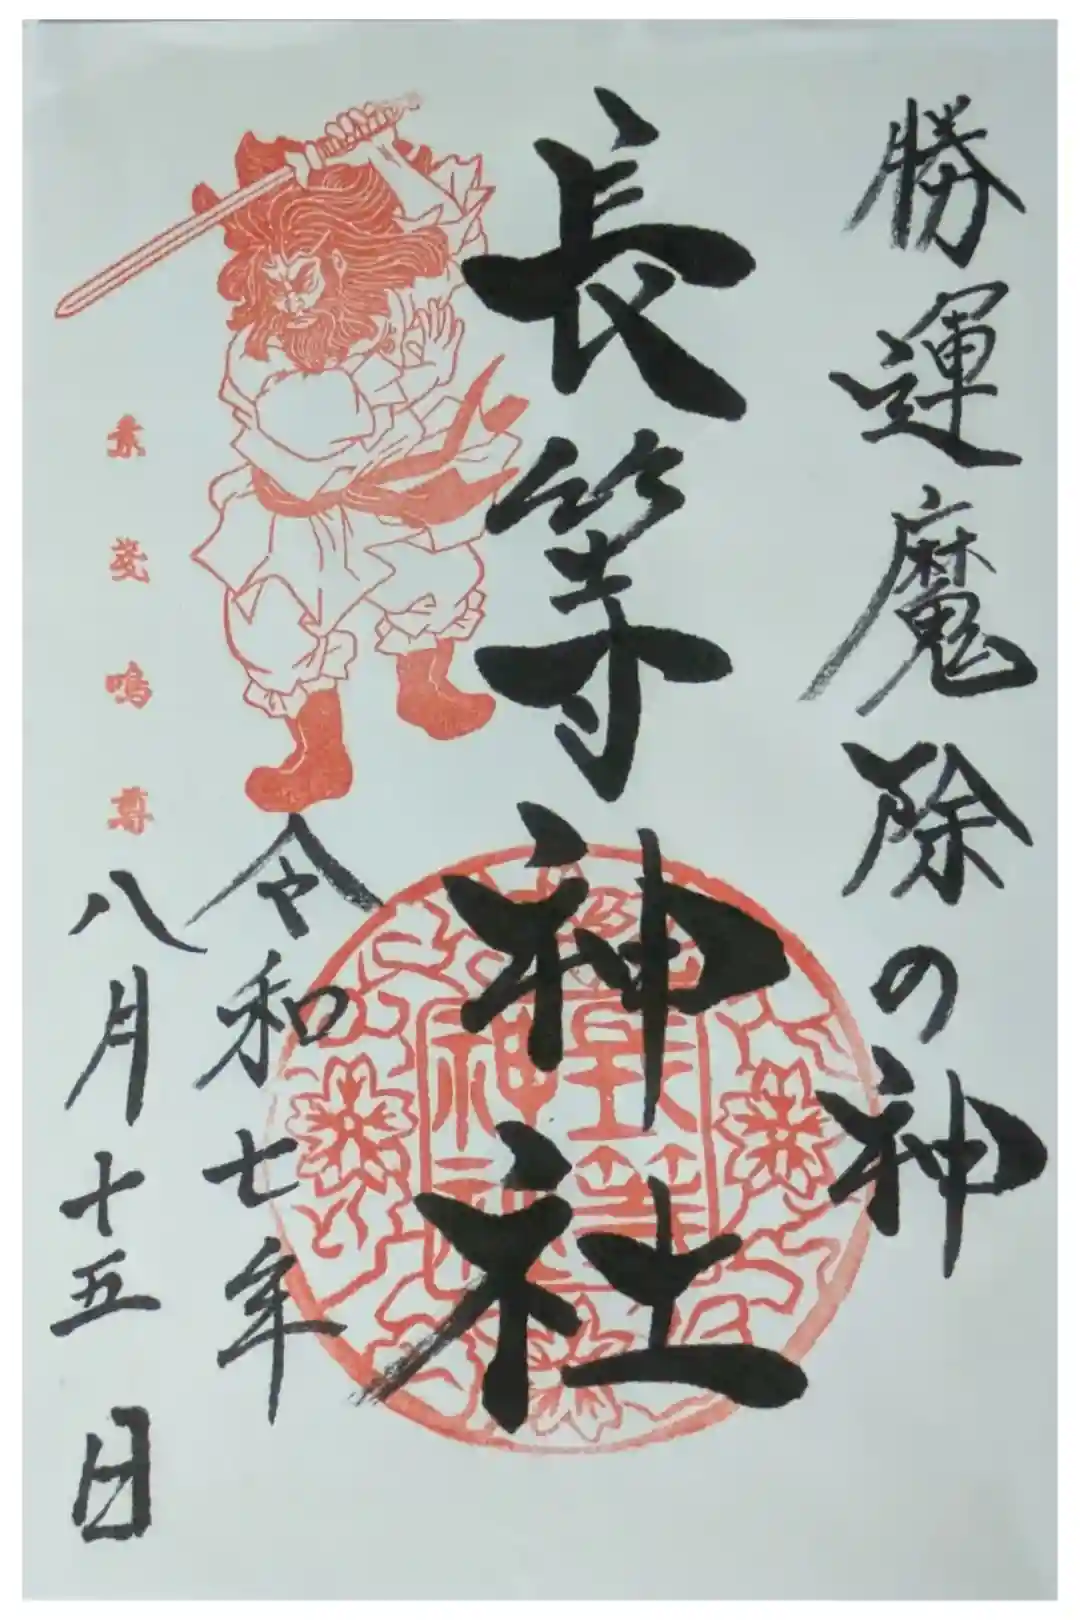 勝運魔除の神
長等神社
長等
神社
令和七年
八月十五日
素戔嗚尊